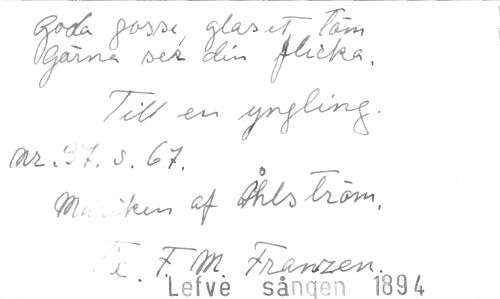 Goda gosse, glaset töm
Gärna ser din flicka.
Till en yngling.
nr. 37. s. 67.
Musiken af Åhlström.
F. M. Franzen.
Lefve sången 1894